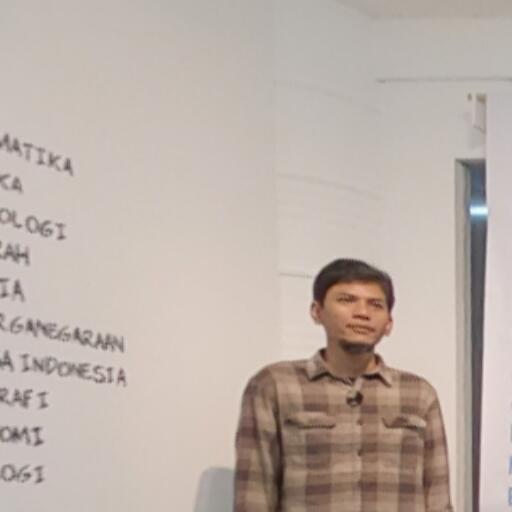 MATIKA
KA
OLOGI
RAH
IA
RGANEGARAAN
A INDONESIA
RAFI
OMI
OGI